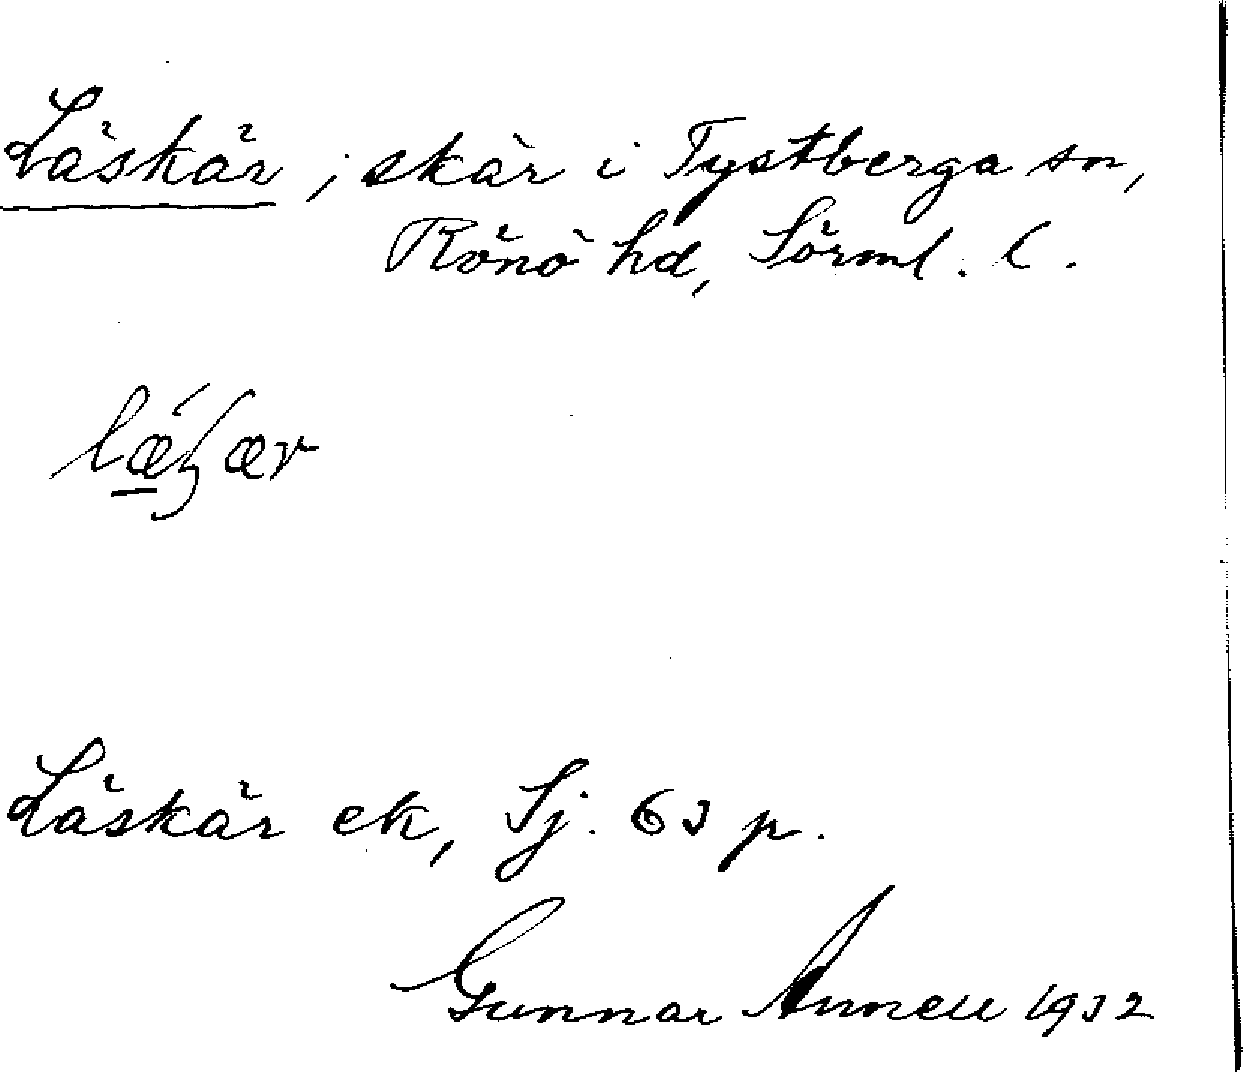 Läskär, skär i Tystberga sn,
Rönö hd, Sörml. l.
Läskär ek, Sj. 63 p.
Gunnar Annell 1932